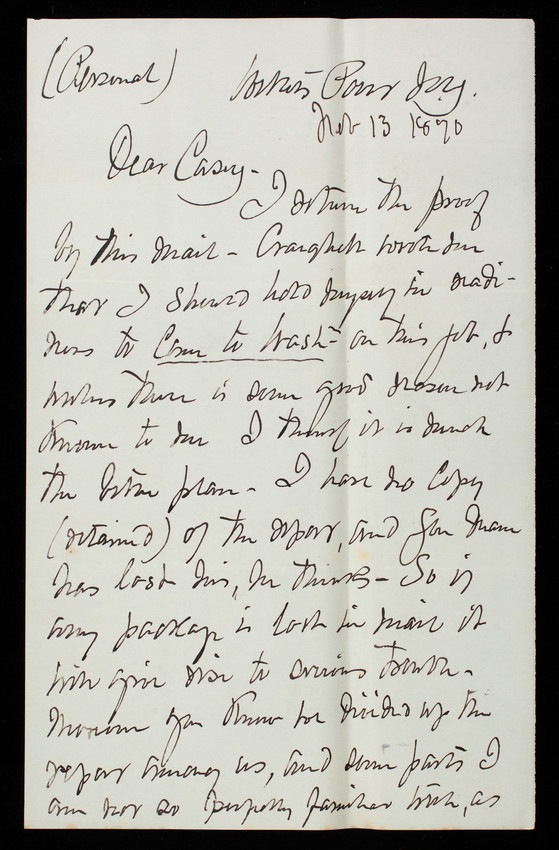 (Personal)
Willets Point N.Y.
Feb 13 1890
Dear Casey-
I return the proof
by this mail - Craighill wrote me
that I should hold myself in readi-
ness to Come to Wash- on this job, &
unless there is some good reason not
known to me I think it is much
the better plan - I have no Copy
(retained) of the report, and Gen
has lost his, he thinks - So if
any package is lost in mail it
will give rise to serious trouble -
Moreover you know we divided up the
report among us, and some parts I
am not so perfectly familiar with, as